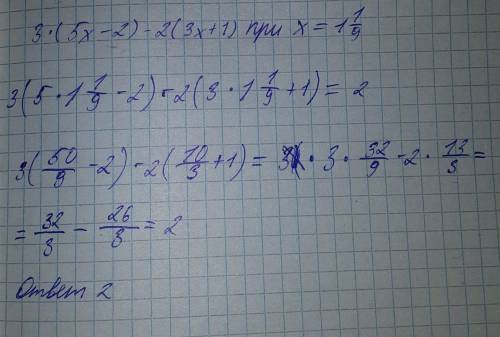 3·(5x-2)-2(3x+1) при x=1 1/9
3(5·1 1/9-2)-2(3·1 1/9+1)= 2
3(50/9-2)-2(10/3+1)= 3·32/9-2·13/3=
=32/3-26/3=2
Ответ 2